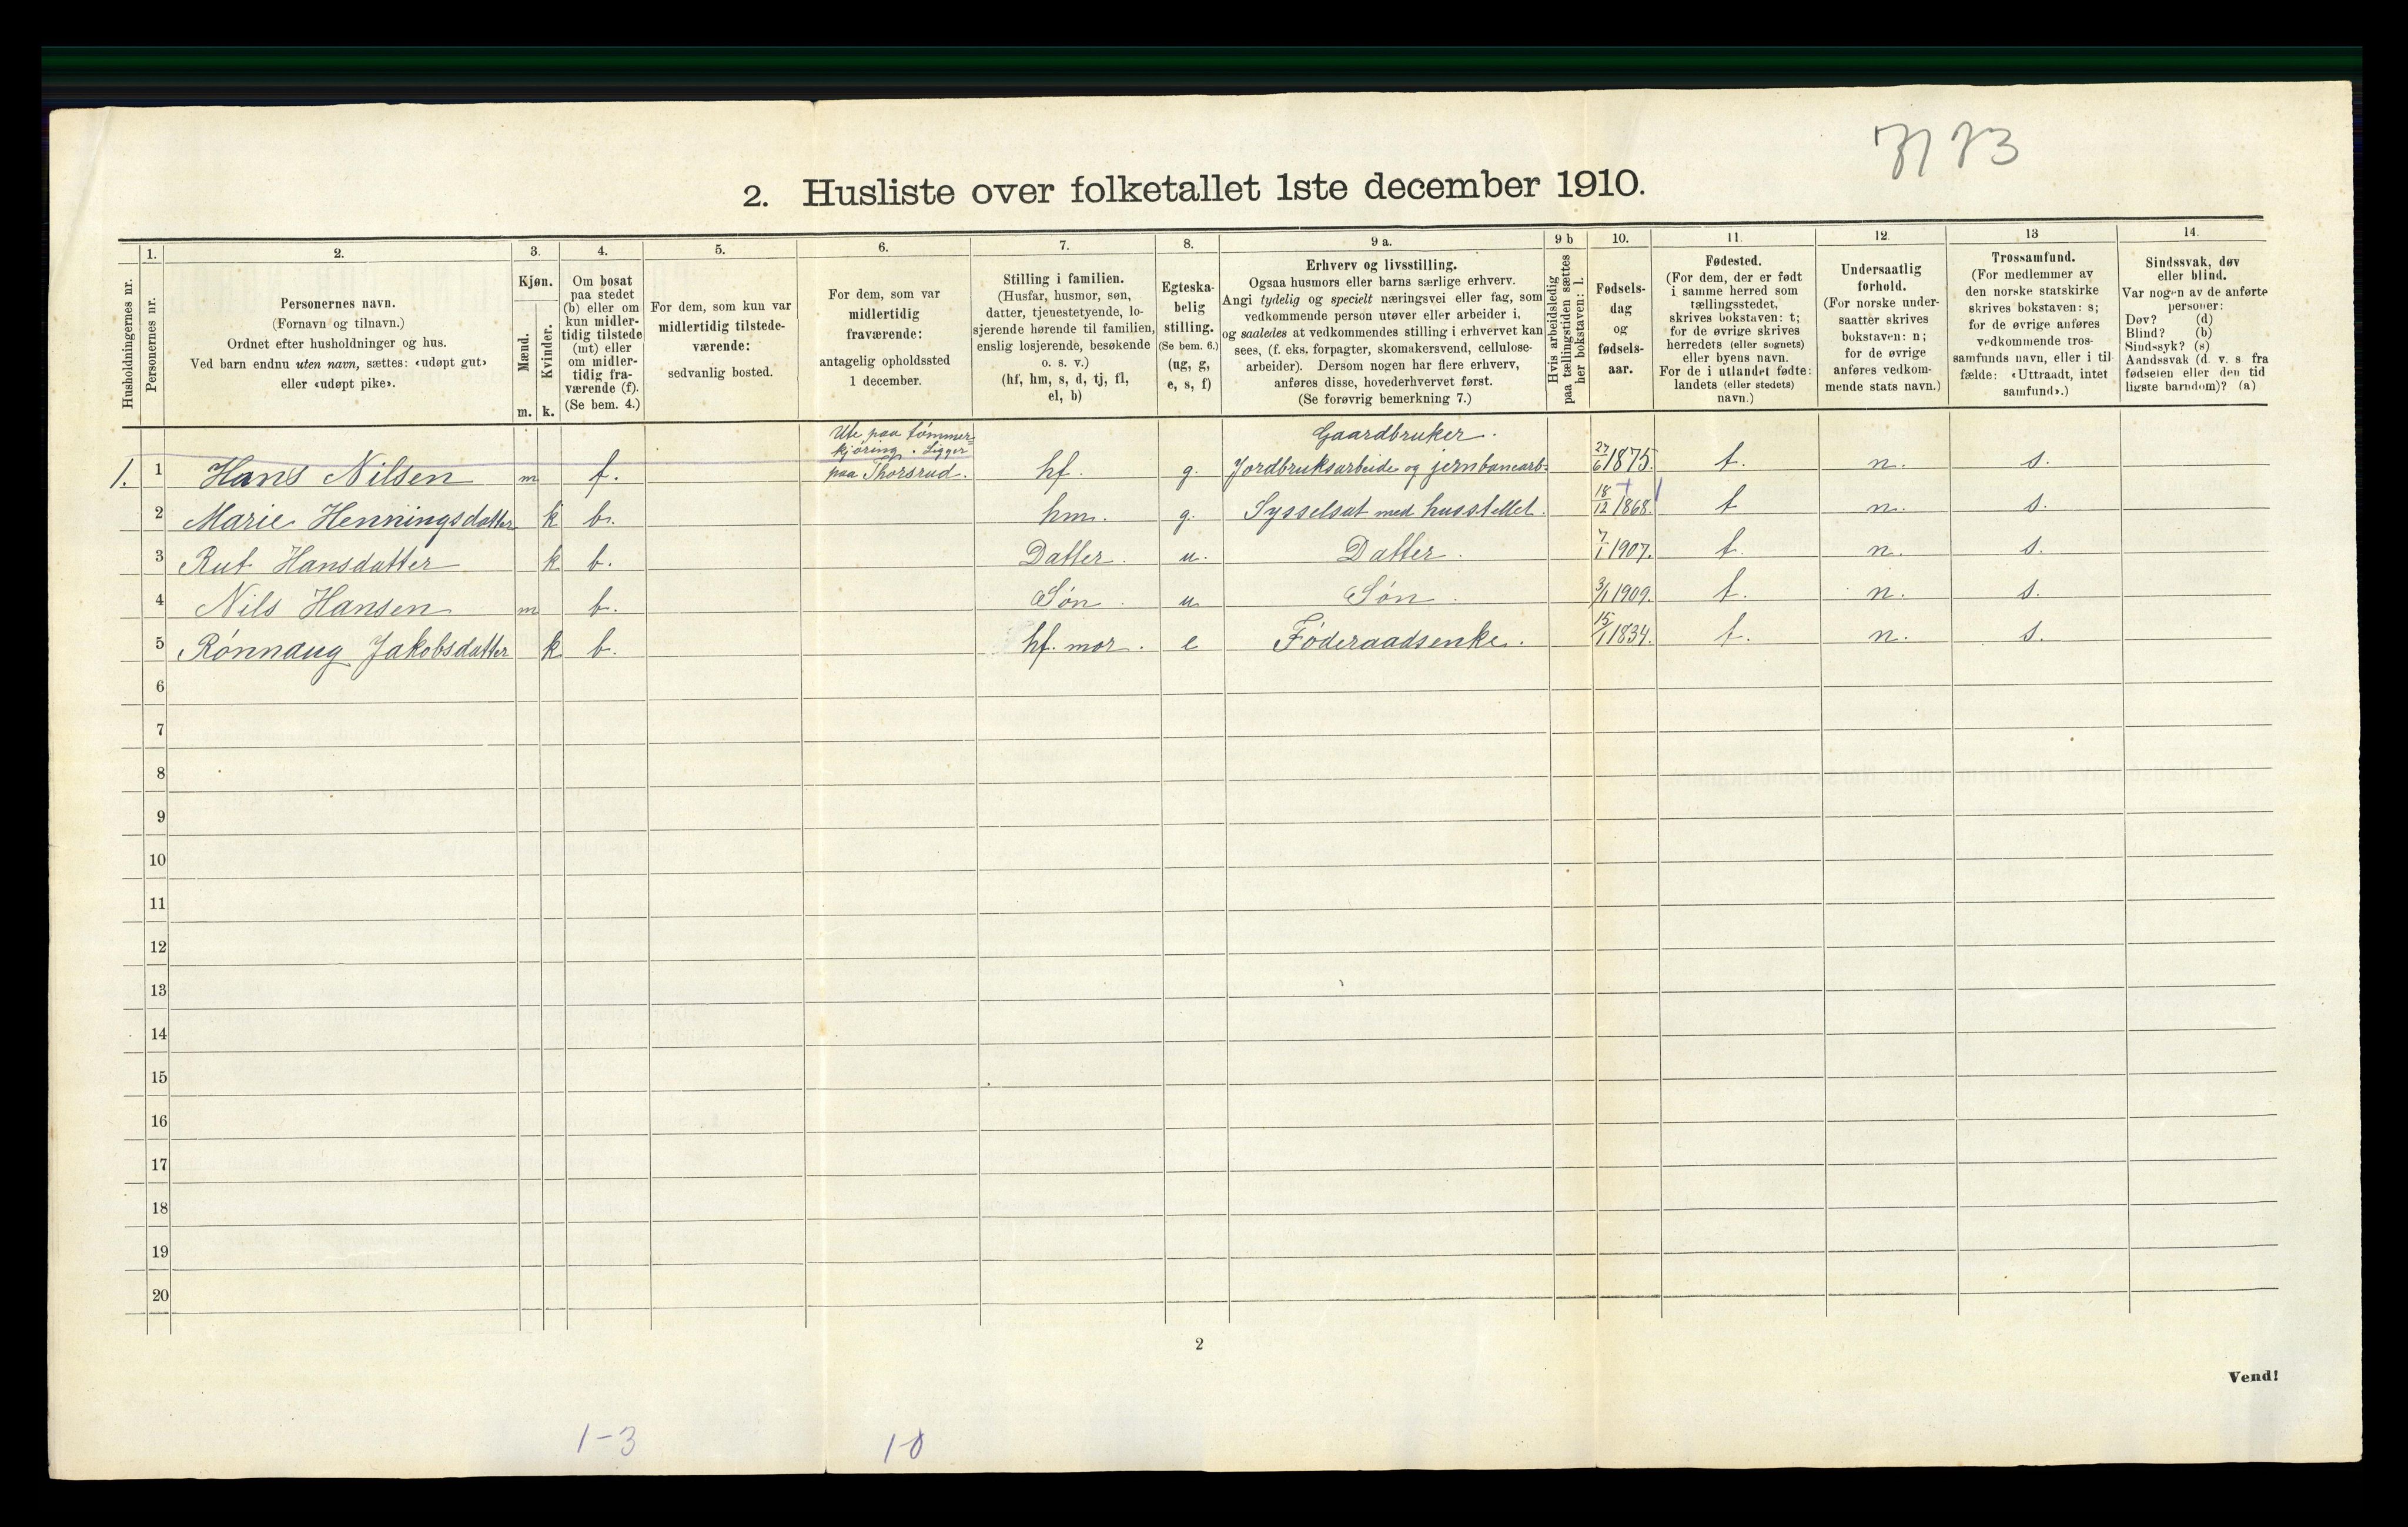 7173
2. Husliste over folketallet 1ste december 1910.
Husholdningernes nr.
1.
Personernes nr.
2.
Personernes navn.
(Fornavn og tilnavn.)
Ordnet efter husholdninger og hus.
Ved barn endnu uten navn, sættes: «udøpt gut»
eller «udøpt pike».
3.
Kjøn.
Mænd.
Kvinder.
m. k.
4.
Om bosat
paa stedet
(b) eller om
kun midler-
tidig tilstede
(mt) eller
om midler-
tidig fra-
værende (f).
(Se bem. 4.)
5.
For dem, som kun var
midlertidig tilstede-
værende:
sedvanlig bosted.
6.
For dem, som var
midlertidig
fraværende:
antagelig opholdssted
1 december.
7.
Stilling i familien.
(Husfar, husmor, søn,
datter, tjenestetyende, lo-
sjerende hørende til familien,
enslig losjerende, besøkende
o. s. v.)
(hf, hm, s, d, tj, fl,
el, b)
8.
Egteska-
belig
stilling.
(Se bem. 6.)
(ug, g,
e, s, f)
9 a.
Erhverv og livsstilling.
Ogsaa husmors eller barns særlige erhverv.
Angi tydelig og specielt næringsvei eller fag, som
vedkommende person utøver eller arbeider i,
og saaledes at vedkommendes stilling i erhvervet kan
sees, (f. eks. forpagter, skomakersvend, cellulose-
arbeider). Dersom nogen har flere erhverv,
anføres disse, hovederhvervet først.
(Se forøvrig bemerkning 7.)
9 b
Hvis arbeidsledig
paa tællingstiden sættes
her bokstaven: l.
10.
Fødsels-
dag
og
fødsels-
aar.
11.
Fødested.
(For dem, der er født
i samme herred som
tællingsstedet,
skrives bokstaven: t;
for de øvrige skrives
herredets (eller sognets)
eller byens navn.
For de i utlandet fødte:
landets (eller stedets)
navn.)
12.
Undersaatlig
forhold.
(For norske under-
saatter skrives
bokstaven: n;
for de øvrige
anføres vedkom-
mende stats navn.)
13
Trossamfund.
(For medlemmer av
den norske statskirke
skrives bokstaven: s;
for de øvrige anføres
vedkommende tros-
samfunds navn, eller i til-
fælde: «Uttraadt, intet
samfund».)
14.
Sindssvak, døv
eller blind.
Var nogen av de anførte
personer:
Døv? (d)
Blind? (b)
Sindssyk? (s)
Aandssvak (d. v. s. fra
fødselen eller den tid-
ligste barndom)? (a)
Ute paa tømmer=
kjøring. Ligger
Gaardbruker.
1. 1 Hans Nilsen m f. paa Thorsrud. hf. g. Jordbruksarbeide og jernbanearb= 27/6 1875. t. n. s.
2 Marie Henningsdatter k b. hm. g. Sysselsat med husstellet. 18/12 1868. t n. s.
3 Rut Hansdatter k b. Datter. u. Datter. 7/1 1907. t. n. s.
4 Nils Hansen m b. Søn. u Søn. 3/1 1909. t. n. s.
5 Rønnaug Jakobsdatter k b. hf. mor. e Føderaadsenke. 15/1 1834. t. n. s.
6
7
8
9
10
11
12
13
14
15
16
17
18
19
20
2
Vend!
1-3 1-0